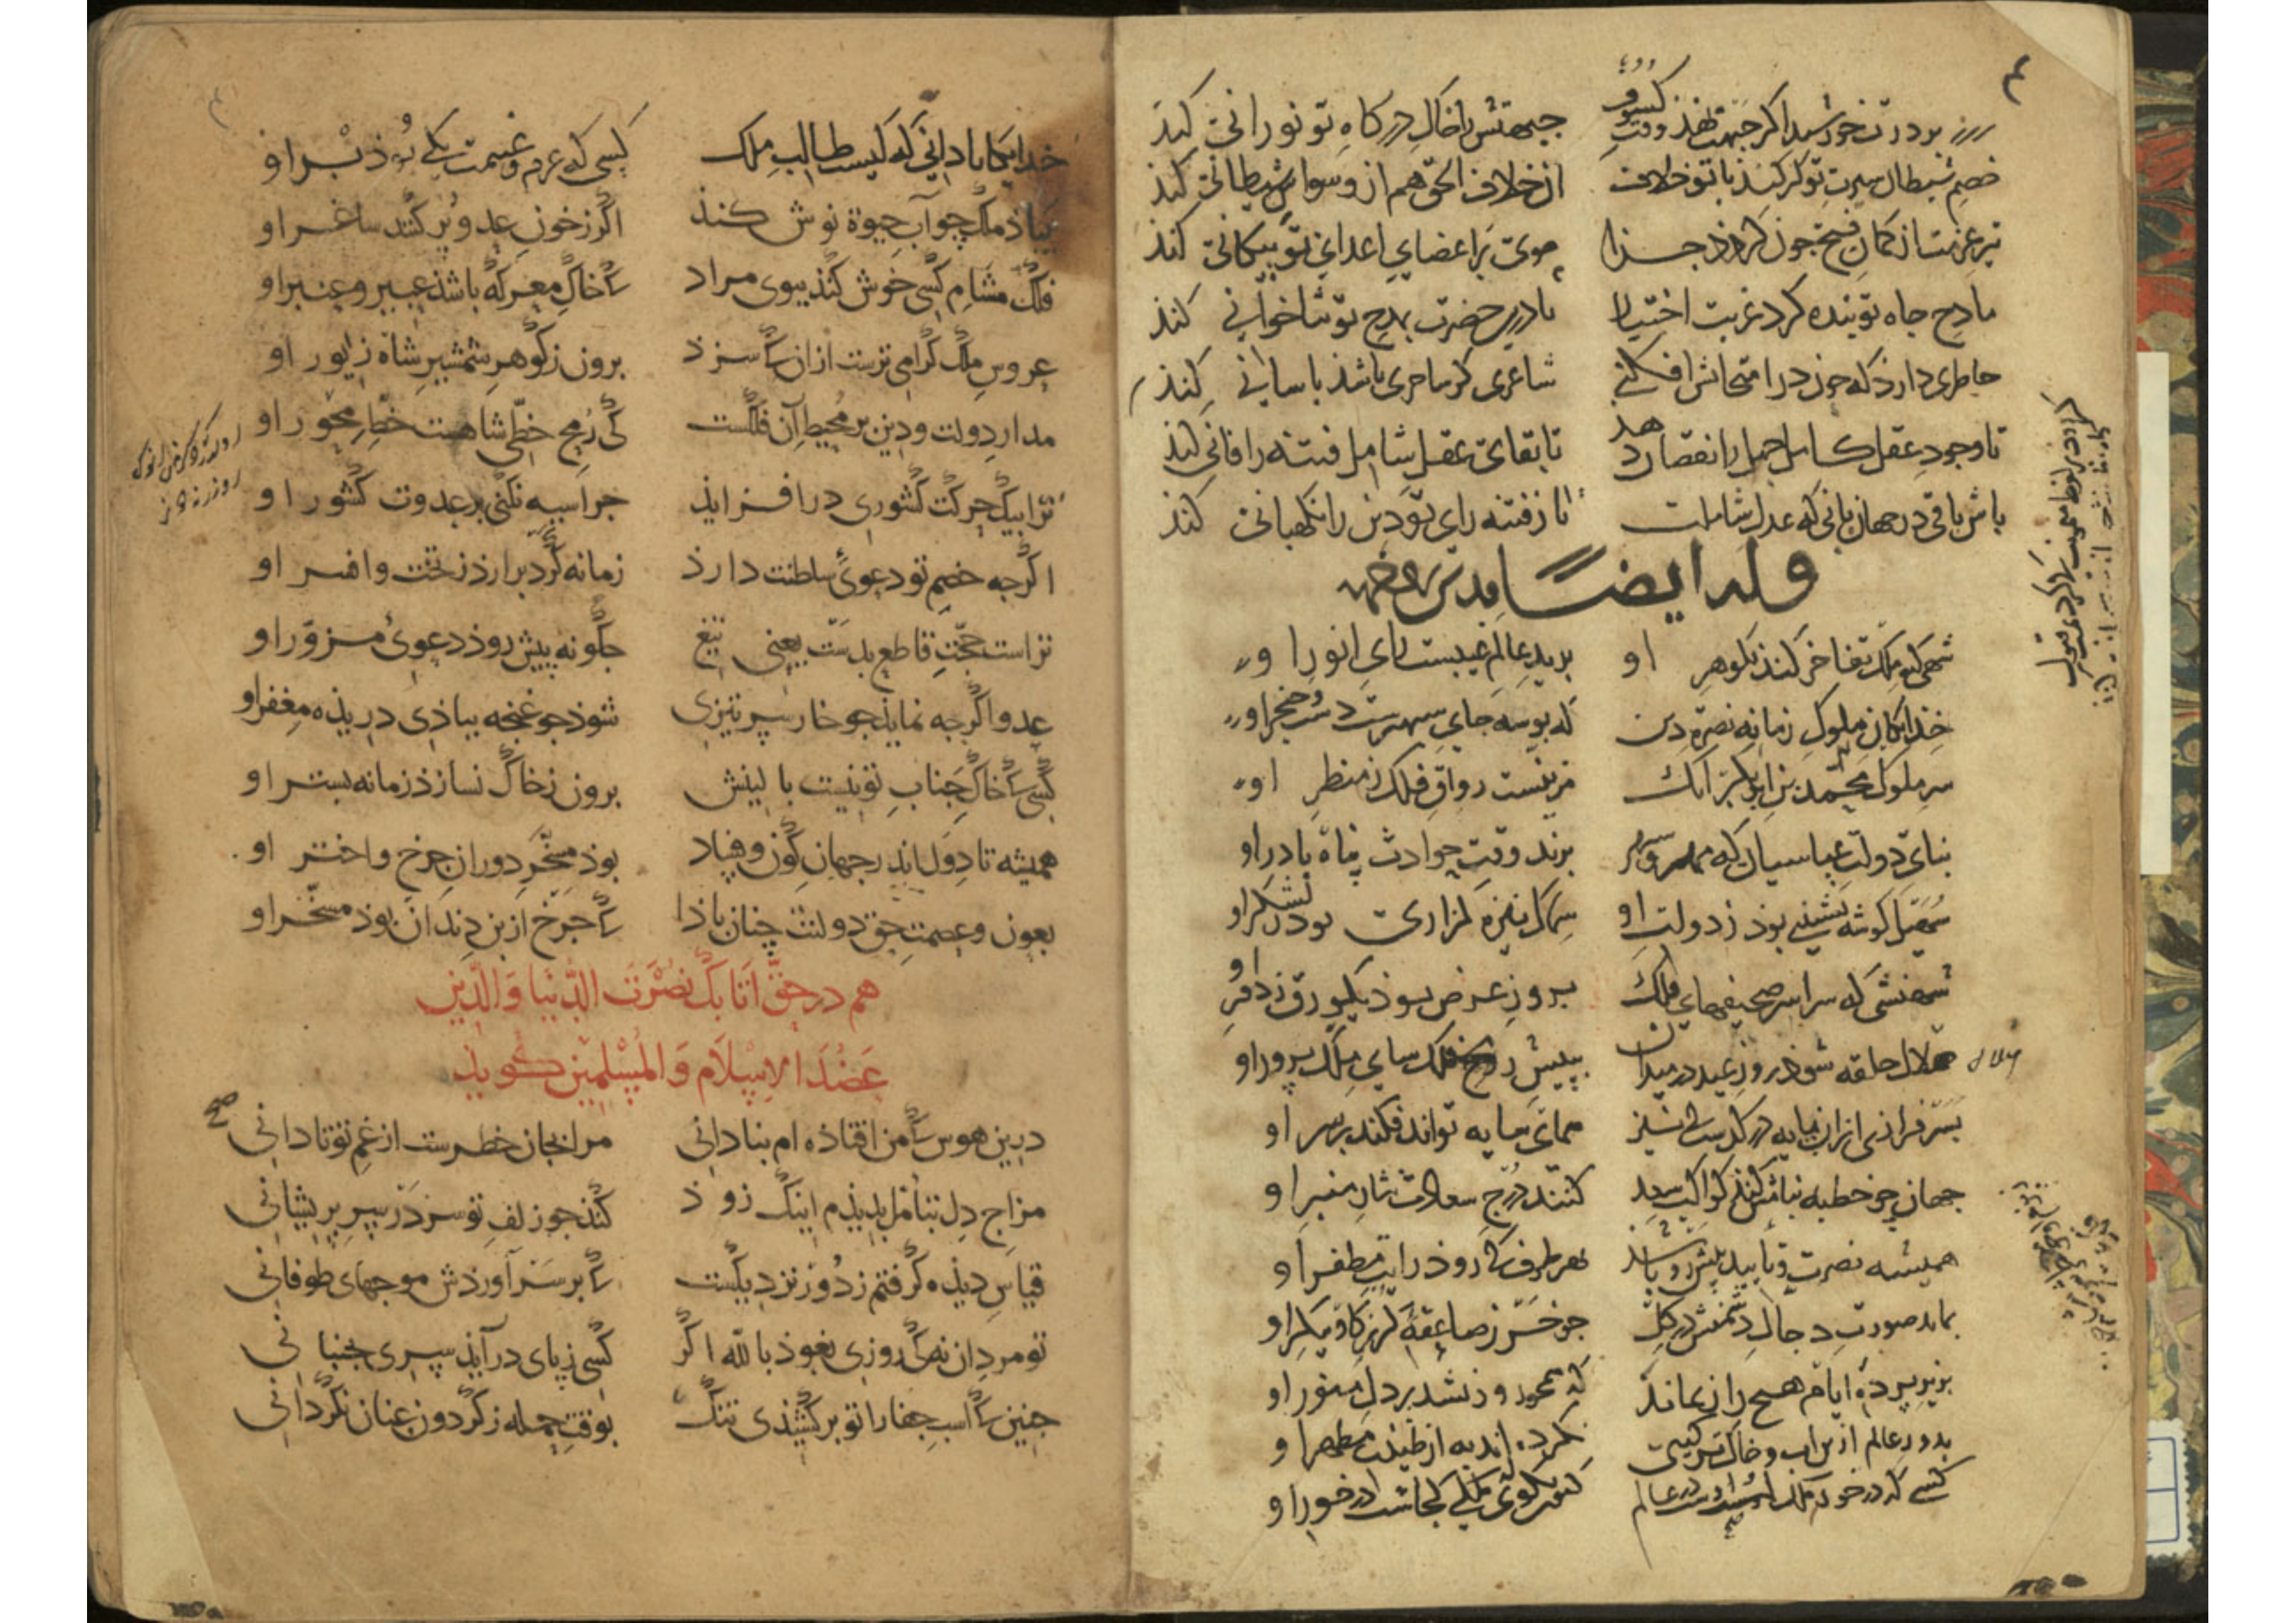 بر درت خورشید اگر جبهت نهد وقت کسوف جبهتش را خاک درگاه تو نورانی کند
خصم شیطان سیرت تو گر کند با تو خلاف از خلاف الحق هم از وسواس شیطانی کند
تیر عزمت از کمان فتح چون گردد جدا موی بر اعضای اعدای تو پیکانی کند
مادح جاه تو بنده کرد غربت اختیار تا درین حضرت بمدح تو ثناخوانی کند
خاطری دارد که چون در امتحانش افکنی شاعری کر ساحری باشد باسانی کند
تا وجود عقل کامل جهل را نقصان دهد تا بقای عقل شامل فتنه را فانی کند
باش باقی در جهانبانی که عدل شاملت تا ز فتنه رای تو دین را نگهبانی کند
وله ایضا
شهی که ملک تفاخر کند بگوهر او برید عالم غیبست رای انور او
خدایگان ملوک زمانه نصرة دین که بوسه جای سپهرست دست و خنجر او
سر ملوک محمد بن ابوبکر اتابک مزینست رواق فلک ز منظر او
بنای دولت عباسیان که برند وقت حوادث پناه با در او
مقبل گوشه نشینی بود ز دولت او سماک نیزه گزاری بود ز لشکر او
شهنشی که سراسر صحیفهای فلک بروز عرض بود یک ورق ز دفتر او
هلال حلقه شود روز عید در میدان بپیش رمح فلک سای ملک پرور او
بسرفرازی ازان پایه درگذشت همای سایه تواند فکند بر سر او
جهان چو خطبه بنامش کند کواکب سعد کنند درج سعادت نثار منبر او
همیشه نصرت و تأیید پیش رو باشد بهر طرف که رود رایت مظفر او
بماند صورت دجال دشمنش در گل چو خر ز صاعقه گرز گاو پیکر او
بزیر پرده ایام هیچ راز نماند که همچو روز نشد بر دل منور او
بدور عالم ازین آب و خاک ترکیبی نکرده اند به از طینت مطهر او
کسی که در خور ملک در عالم کجاست در خور او
خدایگانا دانی که کیست طالب ملک کسی که عزم و غنیمت یکی بود بر او
بیاد ملک چو آب حیوة نوش کند اگر ز خون عدو پر کنند ساغر او
فلک مشام کسی خوش کند ببوی مراد که خاک معرکه باشد عبیر و عنبر او
عروس ملک گرامی ترست ازان که سزد برون ز گوهر شمشیر شاه زیور او
مدار دولت و دین بر محیط آن فلکست که رمح خطی شاهست خط محور او
ترا بیک حرکت کشوری در افزاید چرا سپه نکشی بر عدوت کشور او
اگرچه خصم تو دعوی سلطنت دارد زمانه گرد برآرد ز تخت و افسر او
تراست حجت قاطع بدست یعنی تیغ چگونه پیش رود دعوی مزور او
عدو اگرچه نماید چو خار سر تیزی شود چو غنچه ببادی دریده مغفر او
کسی که خاک جناب تو نیست بالینش برون ز خاک نسازد زمانه بستر او
همیشه تا دول اندر جهان کون و فساد بود مسخر دوران چرخ و اختر او
بعون و عصمت حق دولتت چنان بادا که چرخ از بن دندان بود مسخر او
هم در حق اتابک نصرت الدنیا والدین
عضد الاسلام والمسلمین گوید
درین هوس که من افتاده ام بنادانی مرا بجان خطرست از غم تو تا دانی
مزاج دل بتأمل بدیدم اینک زود کند چو زلف تو سر در سر پریشانی
قیاس دیده گرفتم ز دور نزدیکست که بر سر آوردش موجهای طوفانی
تو مرد آن نه که روزی نعوذ بالله اگر کسی ز پای درآید سری بجنبانی
چنین که اسب جفا را تو برکشیدی تنگ بوقت حمله ز گردون عنان نگردانی